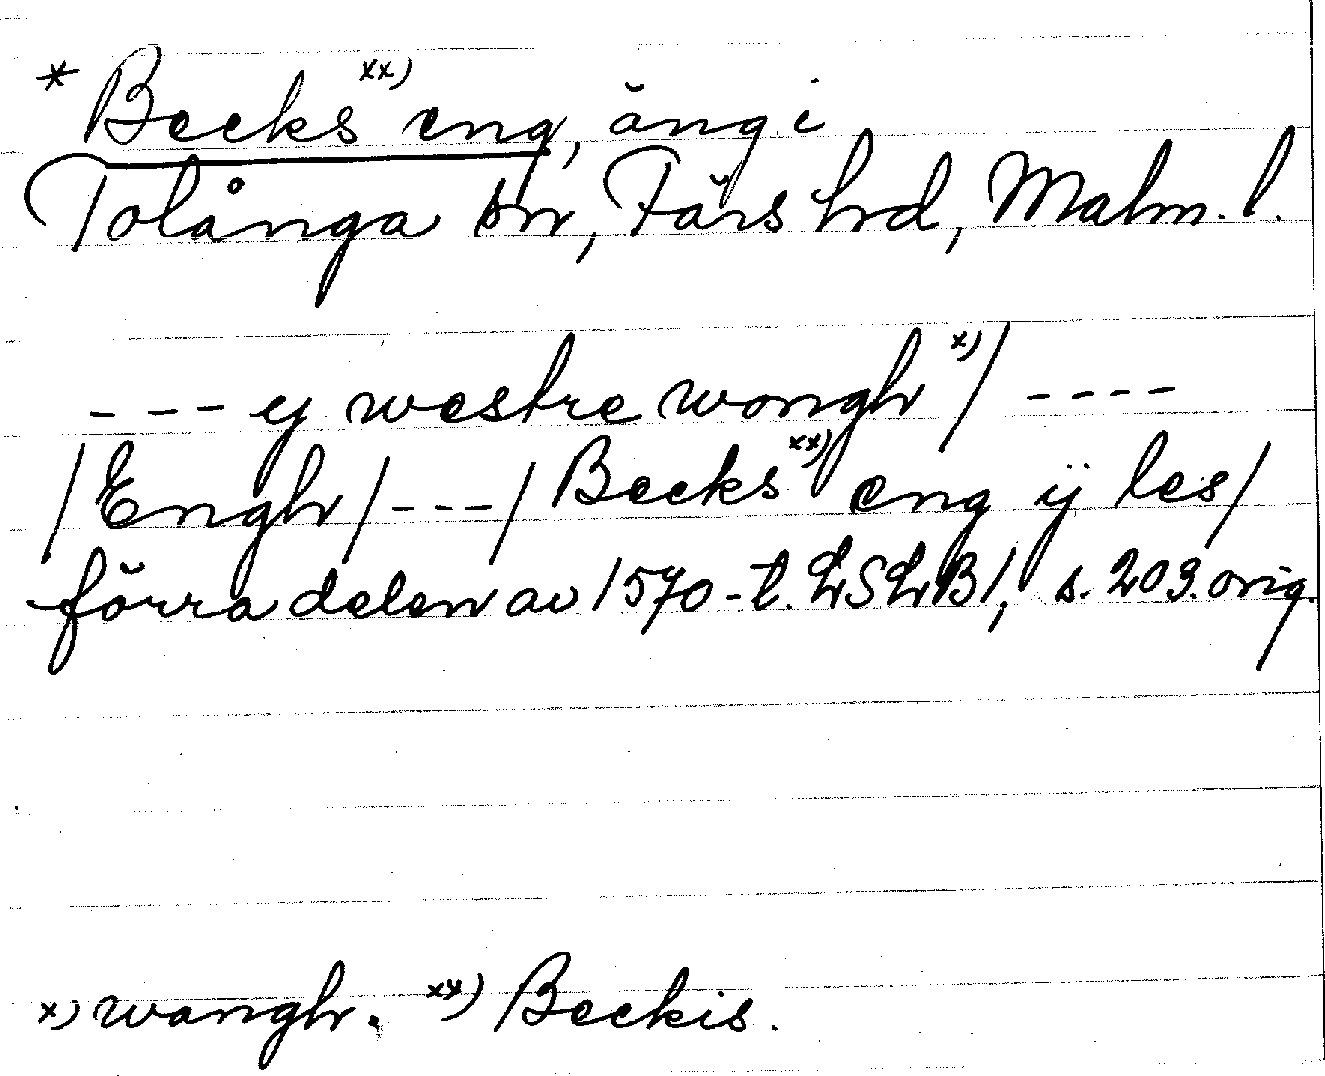 * Becks xx) eng, äng i
Tolånga sn, Färs hrd, Malm. l.
- - - y westre wongh x) / - - - -
/ Engh / - - - / Becks xx) eng ÿ les /
förra delen av 1570-t. LSLB 1, s. 209. orig.
x) wangh. xx) Beckis.